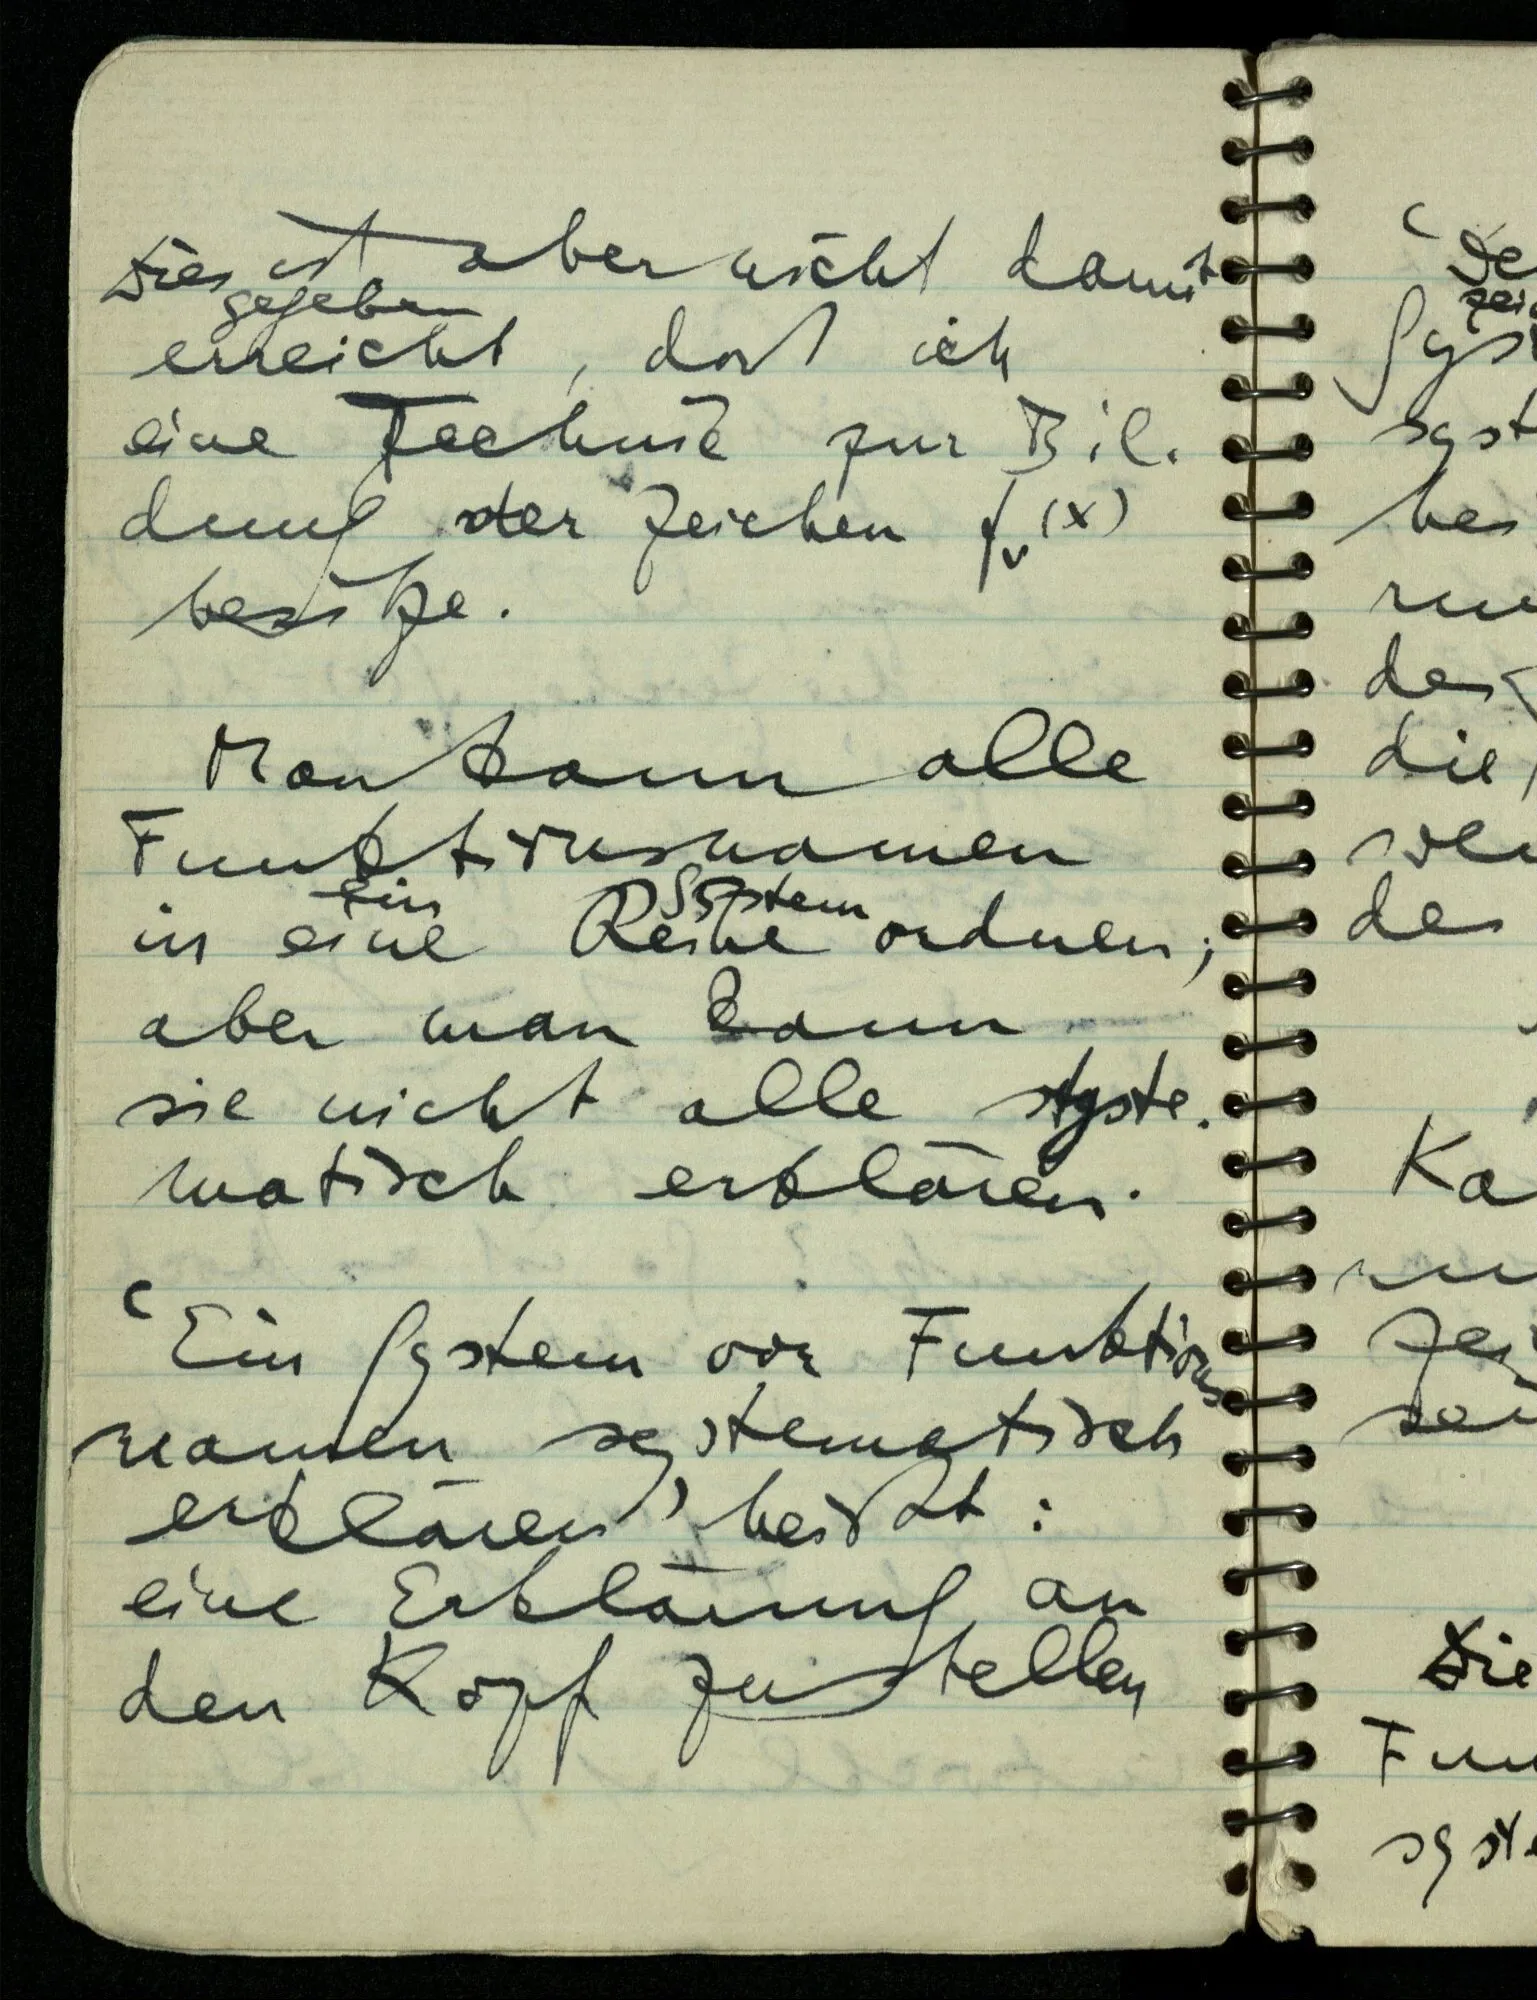 Dies ist aber nicht damit
gegeben
erreicht, daß ich
eine Technik zur Bil-
dung der Zeichen fᵥ(x)
besitze.
Man kann alle
Funktionsnamen
ein System
in eine Reihe ordnen;
aber man kann
sie nicht alle syste-
matisch erklären.
‘Ein System von Funktions
namen systematisch
erklären’ heißt:
eine Erklärung an
den Kopf zu stellen